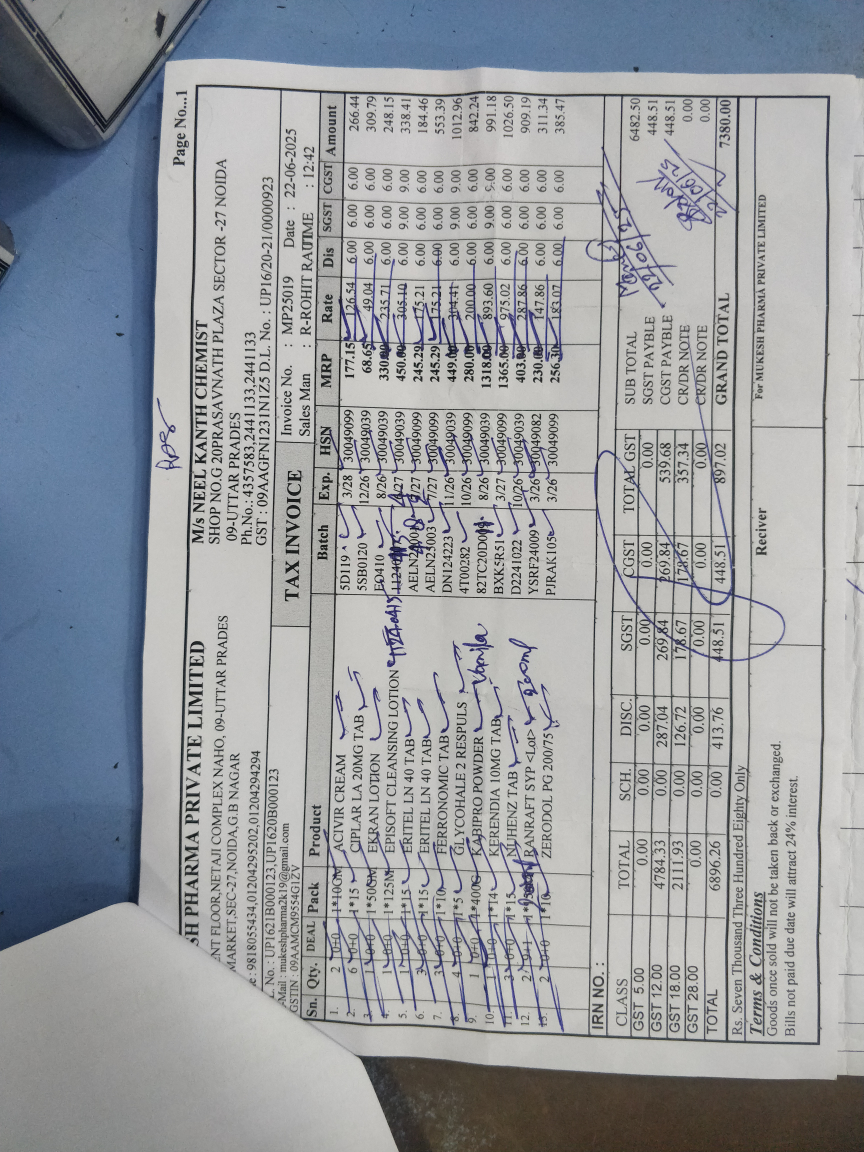 Page No...1
SH PHARMA PRIVATE LIMITED
ENT FLOOR,NETAJI COMPLEX NAHO, 09-UTTAR PRADES
MARKET,SEC-27,NOIDA,G.B NAGAR
e : 9818055434,01204295202,01204294294
L. No. : UP1621B000123,UP1620B000123
E-Mail : mukeshpharma2k19@gmail.com
GSTIN : 09AAMCM9554G1ZV
M/s NEEL KANTH CHEMIST
SHOP NO.G 20PRASAVNATH PLAZA SECTOR -27 NOIDA
09-UTTAR PRADES
Ph.No.: 4357583,2441133,2441133
GST : 09AAGFN1231N1Z5 D.L. No. : UP16/20-21/0000923
TAX INVOICE
Invoice No. : MP25019 Date : 22-06-2025
Sales Man : R-ROHIT RAUTIME : 12:42
Sn. Qty. DEAL Pack Product Batch Exp. HSN MRP Rate Dis SGST CGST Amount
1. 2 0+0 1*10GM ACIVIR CREAM 5D119 3/28 30049099 177.15 126.54 6.00 6.00 6.00 266.44
2. 6 0+0 1*15 CIPLAR LA 20MG TAB 5SB0120 12/26 30049039 68.65 49.04 6.00 6.00 6.00 309.79
3. 1 0+0 1*50GM EKRAN LOTION EO410 8/26 30049039 330.00 235.71 6.00 6.00 6.00 248.15
4. 1 0+0 1*125M EPISOFT CLEANSING LOTION 30049039 450.00 305.10 6.00 9.00 9.00 338.41
5. 1 0+0 1*15 ERITEL LN 40 TAB 30049099 245.29 175.21 6.00 6.00 6.00 184.46
6. 3 0+0 1*15 ERITEL LN 40 TAB AELN25003 7/27 30049099 245.29 175.21 6.00 6.00 6.00 553.39
7. 3 0+0 1*10 FERRONOMIC TAB DN124223 11/26 30049039 449.00 304.41 6.00 9.00 9.00 1012.96
8. 4 0+0 1*5 GLYCOHALE 2 RESPULS 4T00282 10/26 30049099 280.00 200.00 6.00 6.00 6.00 842.24
9. 1 0+0 1*400G KABIPRO POWDER Vanilla 8/26 30049039 1318.00 893.60 6.00 9.00 9.00 991.18
10. 1 0+0 1*14 KERENDIA 10MG TAB BXK5R51 3/27 30049099 1365.00 975.02 6.00 6.00 6.00 1026.50
11. 3 0+0 1*15 NUHENZ TAB D2241022 10/26 30049039 403.00 287.86 6.00 6.00 6.00 909.19
12. 2 9+1 RANRAFT SYP <Lot> 200ml YSRF24009 3/26 30049082 230.00 147.86 6.00 6.00 6.00 311.34
13. 2 0+0 1*10 ZERODOL PG 200/75 PJRAK105 3/26 30049099 256.30 183.07 6.00 6.00 6.00 385.47
IRN NO. :
CLASS TOTAL SCH. DISC. SGST CGST TOTAL GST
GST 5.00 0.00 0.00 0.00 0.00 0.00 0.00
GST 12.00 4784.33 0.00 287.04 269.84 269.84 539.68
GST 18.00 2111.93 0.00 126.72 178.67 178.67 357.34
GST 28.00 0.00 0.00 0.00 0.00 0.00 0.00
TOTAL 6896.26 0.00 413.76 448.51 448.51 897.02
SUB TOTAL 6482.50
SGST PAYBLE 448.51
CGST PAYBLE 448.51
CR/DR NOTE 0.00
CR/DR NOTE 0.00
GRAND TOTAL 7380.00
Rs. Seven Thousand Three Hundred Eighty Only
Terms & Conditions
Goods once sold will not be taken back or exchanged.
Bills not paid due date will attract 24% interest.
Reciver
For MUKESH PHARMA PRIVATE LIMITED